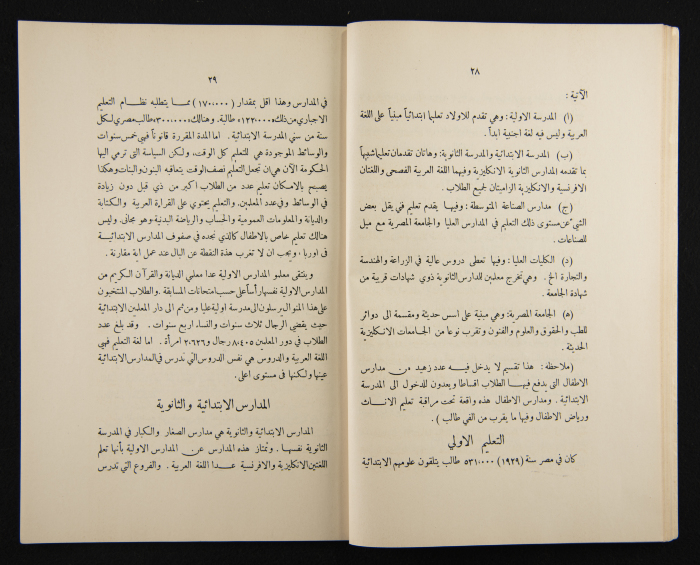 ٢٨
الآتية :
(ا) المدرسة الاولية : وهي تقدم للاولاد تعليماً ابتدائياً مبنياً على اللغة
العربية وليس فيه لغة اجنبية ابداً .
(ب) المدرسة الابتدائية والمدرسة الثانوية : وهاتان تقدمان تعليماً شبيهاً
بما تقدمه المدارس الثانوية الانكليزية وفيهما اللغة العربية الفصحى واللغتان
الافرنسية والانكليزية الزاميتان لجميع الطلاب .
(ج) مدارس الصناعة المتوسطة : وفيها يقدم تعليم فني يقل بعض
الشيء عن مستوى ذلك التعليم في المدارس العليا والجامعة المصرية مع ميل
للصناعات .
(د) الكليات العليا : وفيها تعطى دروس عالية في الزراعة والهندسة
والتجارة الخ . وهي تخرج معلمين للدارس الثانوية ذوي شهادات قريبة من
شهادة الجامعة .
(ه) الجامعة المصرية : وهي مبنية على اسس حديثة ومقسمة الى دوائر
للطب والحقوق والعلوم والفنون وتقرب نوعاً من الجامعات الانكليزية
الحديثة .
(ملاحظة : هذا تقسيم لا يدخل فيه عدد زهيد من مدارس
الاطفال التى يدفع فيها الطلاب اقساطا ويعدون للدخول الى المدرسة
الابتدائية . ومدارس الاطفال هذه واقعة تحت مراقبة تعليم الاناث
ورياض الاطفال وفيها ما يقرب من الفي طالب ) .
التعليم الاولي
كان في مصر سنة (١٩٢٩) ٥٣١،٠٠٠ طالب يتلقون علومهم الابتدائية
٢٩
في المدارس وهذا اقل بمقدار (١٧٠،٠٠٠) مما يتطلبه نظام التعليم
الاجباري من ذلك ١٢٣،٠٠٠ طالبة . وهنالك ٣٠٠،٠٠٠ طالب مصري لكل
سنة من سني المدرسة الابتدائية . اما المدة المقررة قانوناً فهي خمس سنوات
والوسائط الموجودة هي للتعليم كل الوقت ، ولكن السياسة التى ترمي اليها
الحكومة الآن هي ان تجعل التعليم نصف الوقت يتعاقبه البنون والبنات وهكذا
يصبح بالامكان تعليم عدد من الطلاب اكبر من ذي قبل دون زيادة
في الوسائط وفي عدد المعلمين . والتعليم يحتوي على القراءة العربية والكتابة
والديانة والمعلومات العمومية والحساب والرياضة البدنية وهو مجاني وليس
هنالك تعليم خاص بالاطفال كالذي نجده في صفوف المدارس الابتدائية
في اوربا ، ويجب ان لا تغرب هذه النقطة عن البال عند عمل اية مقارنة .
وينتقى معلمو المدارس الاولية عدا معلمي الديانة والقرآن الكريم من
المدارس الاولية نفسها رأساً على حسب امتحانات المسابقة . والطلاب المنتخبون
على هذا المنوال يرسلون الى مدرسة اولية عليا ومن ثم الى دار المعلمين الابتدائية
حيث يقضي الرجال ثلاث سنوات والنساء اربع سنوات . وقد بلغ عدد
الطلاب في دور المعلمين ٨،٤٠٥ رجال و ٢،٦٢٦ امرأة . اما لغة التعليم فهي
اللغة العربية والدروس هي نفس الدروس التي تدرس في المدارس الابتدائية
عينها ولكنها في مستوى اعلى .
المدارس الابتدائية والثانوية
المدارس الابتدائية والثانوية هي مدارس الصغار والكبار في المدرسة
الثانوية نفسها . وتمتاز هذه المدارس عن المدارس الاولية بأنها تعلم
اللغتين الانكليزية والافرنسية عدا اللغة العربية . والفروع التي تدرس